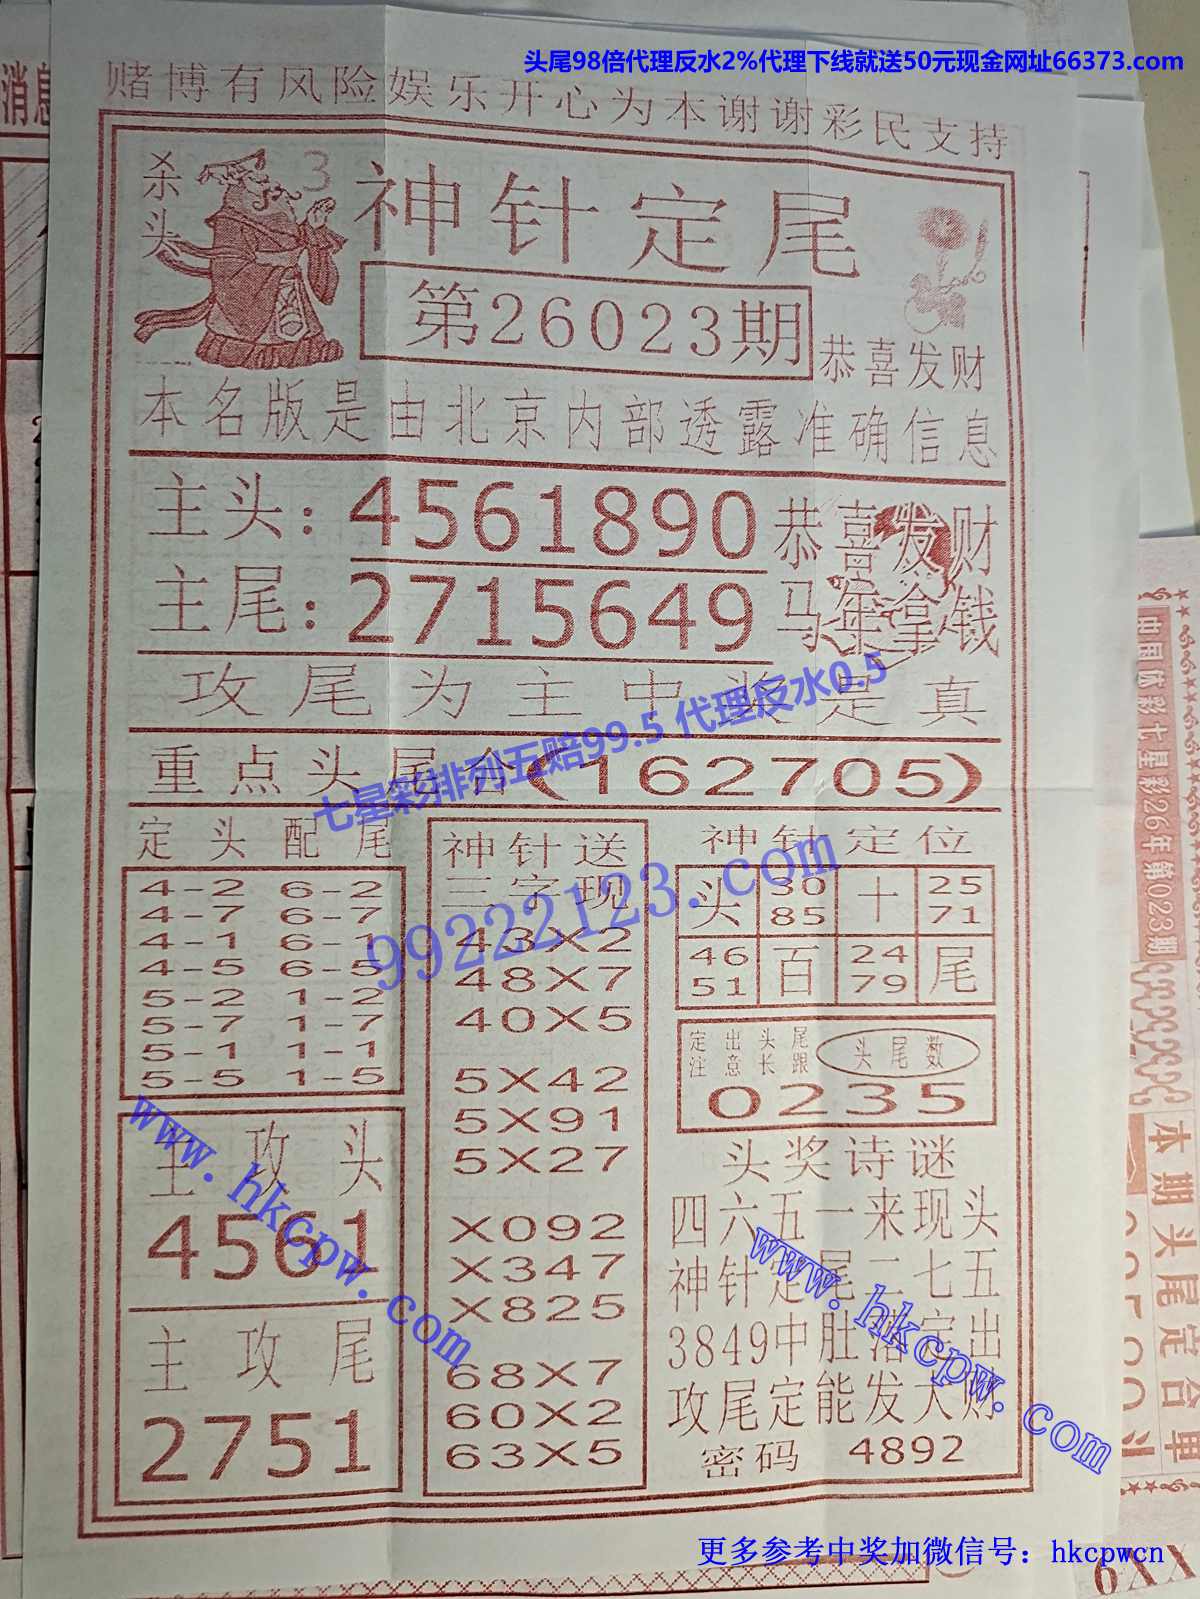 头尾98倍代理反水2%代理下线就送50元现金网址66373.com
消息
赌博有风险娱乐开心为本谢谢彩民支持
杀头
3
神针定尾
第26023期
恭喜发财
本名版是由北京内部透露准确信息
主头：4561890
恭喜发财
主尾：2715649
马年拿钱
攻尾为主中奖是真
七星彩排列五赔99.5 代理反水0.5
重点头尾合(162705)
定头配尾
4-2 6-2
4-7 6-7
4-1 6-1
4-5 6-5
5-2 1-2
5-7 1-7
5-1 1-1
5-5 1-5
主攻头
4561
主攻尾
2751
神针送
三字现
43X2
48X7
40X5
5X42
5X91
5X27
X092
X347
X825
68X7
60X2
63X5
99222123.com
神针定位
头 30 十 25
85 71
46 百 24 尾
51 79
定出头尾
注意长跟
头尾数
0235
头奖诗谜
四六五一来现头
神针定尾二七五
3849中肚落定出
攻尾定能发大财
密码 4892
www.hkcpw.com
www.hkcpw.com
七星彩26年第023期
本期头尾定合单
6XX
更多参考中奖加微信号：hkcpwcn